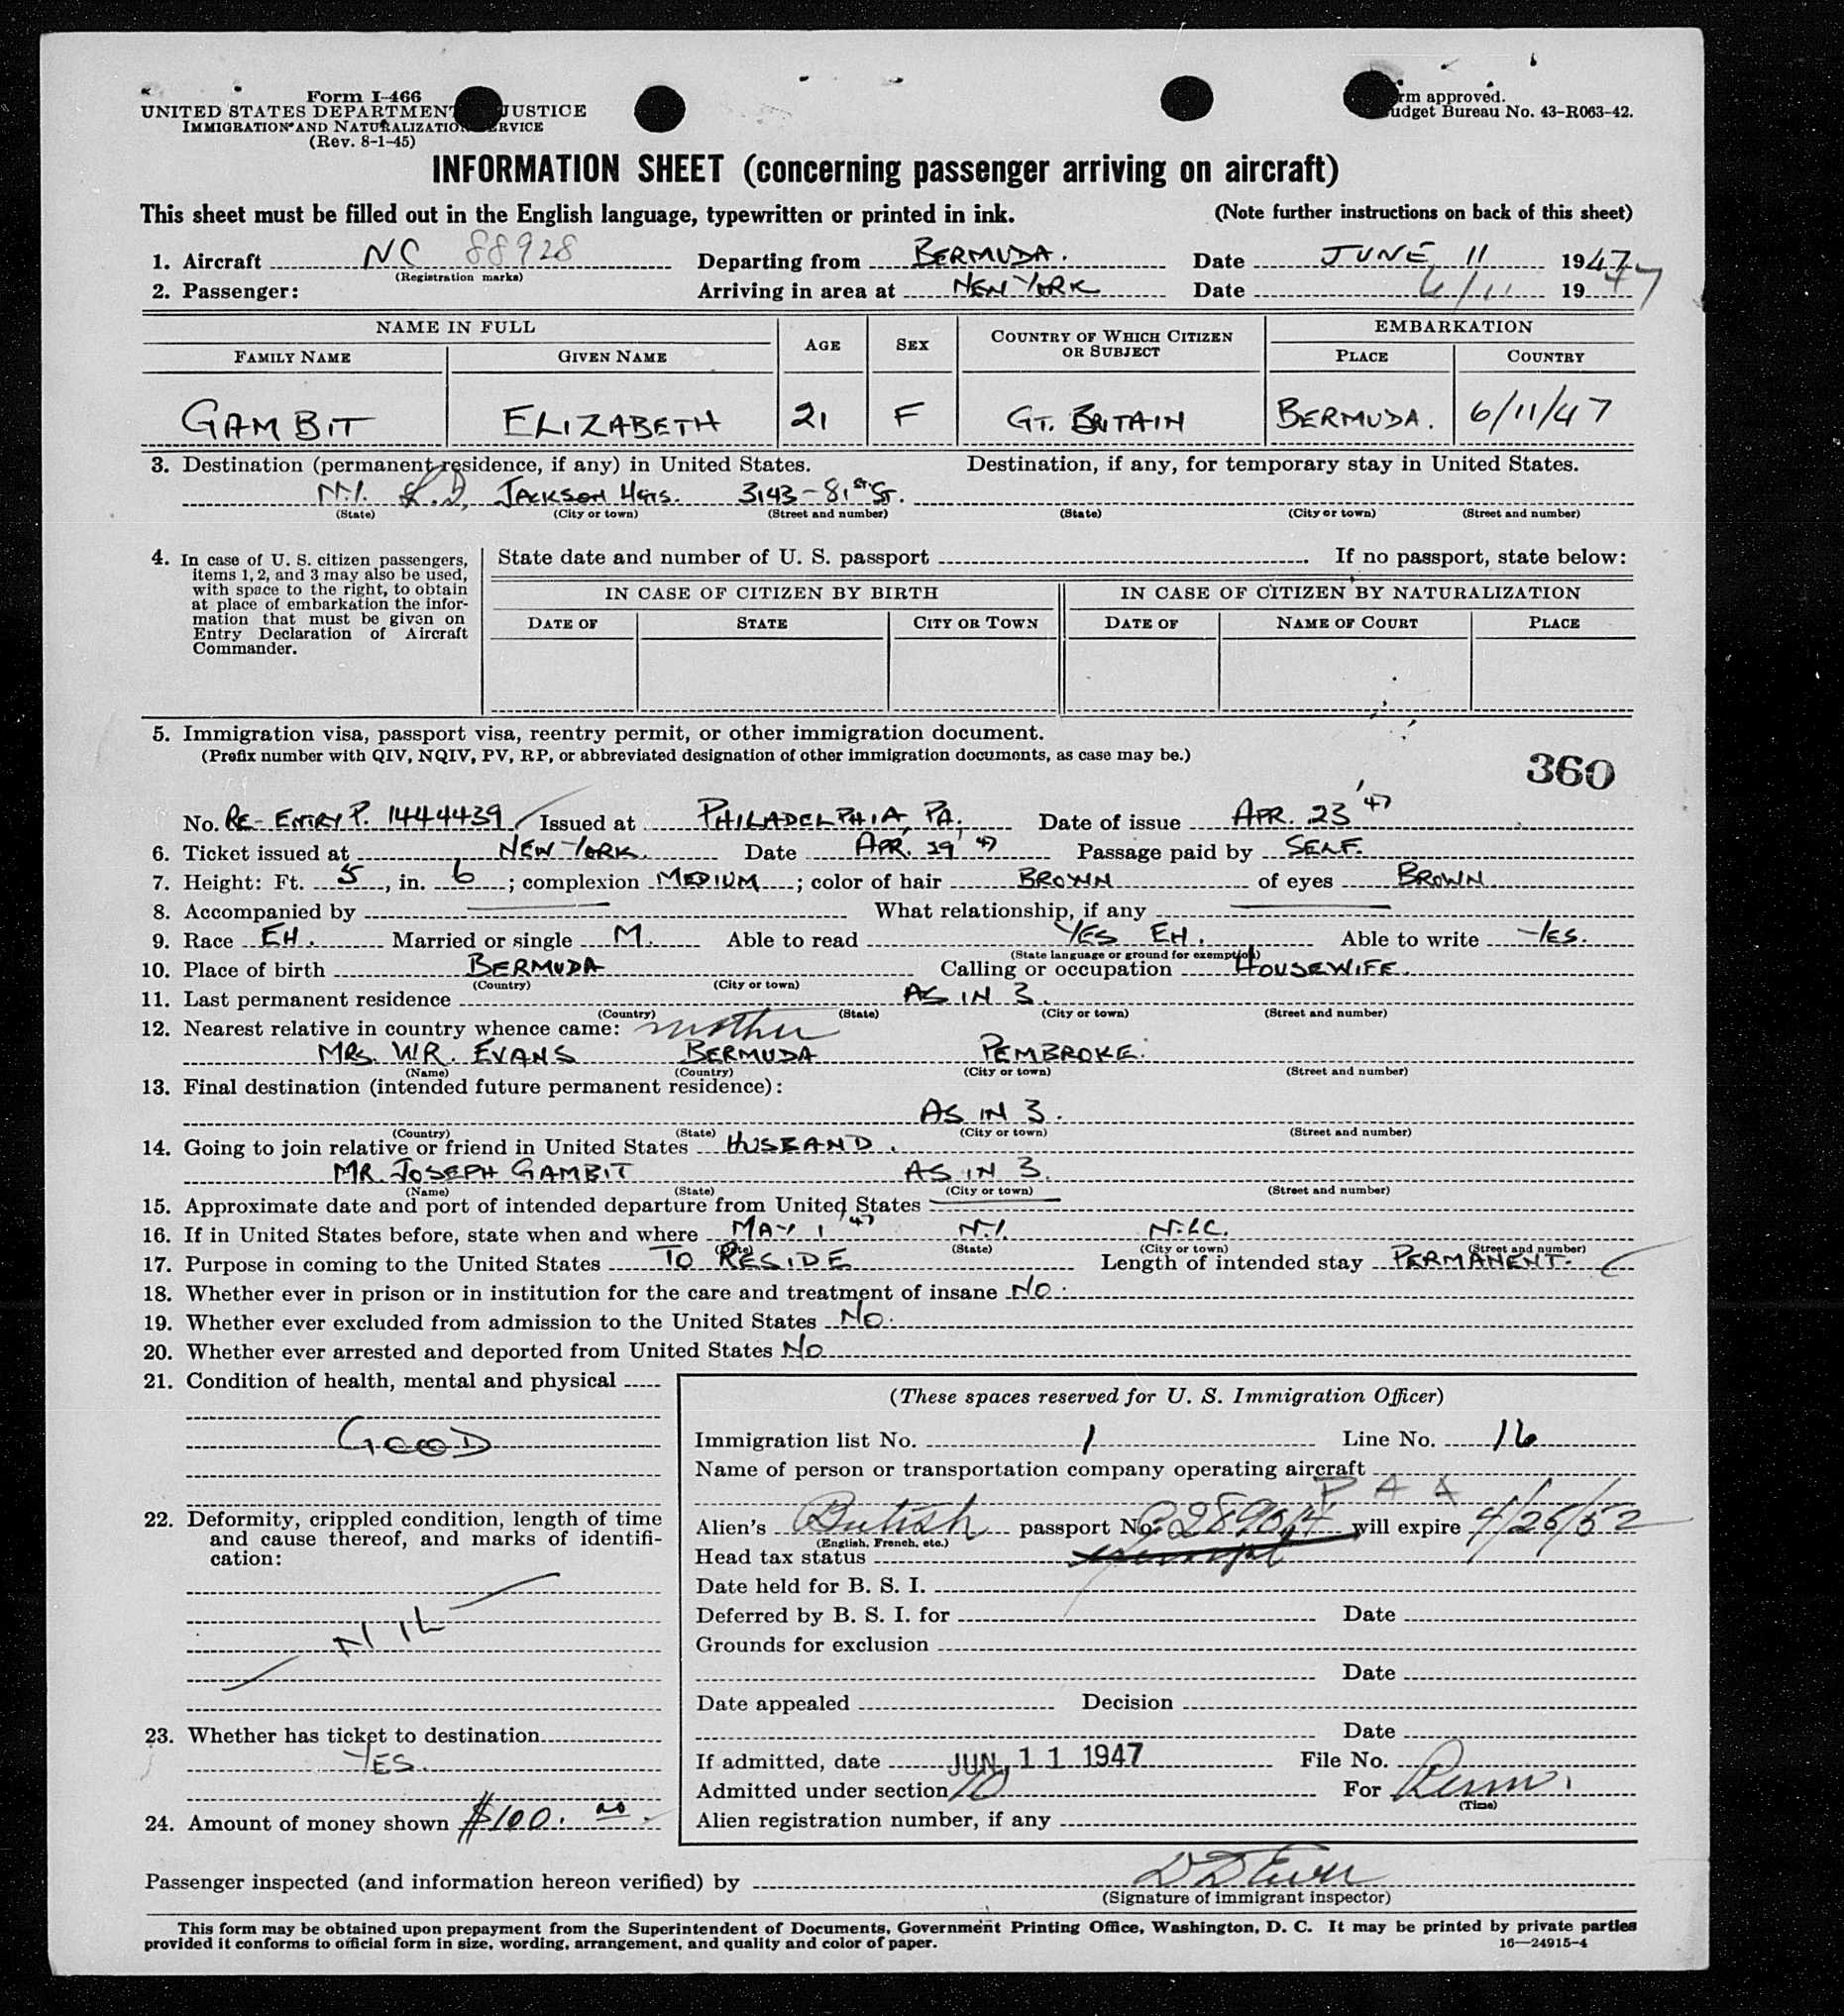 Form I-466
UNITED STATES DEPARTMENT JUSTICE
IMMIGRATION AND NATURALIZATION SERVICE
(Rev. 8-1-45)
Form approved.
Budget Bureau No. 43-R063-42.
INFORMATION SHEET (concerning passenger arriving on aircraft)
This sheet must be filled out in the English language, typewritten or printed in ink. (Note further instructions on back of this sheet)
1. Aircraft NC 88928 Departing from BERMUDA. Date JUNE 11 1947
(Registration marks)
2. Passenger: Arriving in area at NEW YORK Date 6/11 1947
NAME IN FULL AGE SEX COUNTRY OF WHICH CITIZEN OR SUBJECT EMBARKATION
FAMILY NAME GIVEN NAME PLACE COUNTRY
GAMBIT ELIZABETH 21 F GT. BRITAIN BERMUDA. 6/11/47
3. Destination (permanent residence, if any) in United States. Destination, if any, for temporary stay in United States.
N.Y. JACKSON HGTS. 3143-81ST ST.
(State) (City or town) (Street and number) (State) (City or town) (Street and number)
4. In case of U. S. citizen passengers, items 1, 2, and 3 may also be used, with space to the right, to obtain at place of embarkation the information that must be given on Entry Declaration of Aircraft Commander.
State date and number of U. S. passport If no passport, state below:
IN CASE OF CITIZEN BY BIRTH IN CASE OF CITIZEN BY NATURALIZATION
DATE OF STATE CITY OR TOWN DATE OF NAME OF COURT PLACE
5. Immigration visa, passport visa, reentry permit, or other immigration document.
(Prefix number with QIV, NQIV, PV, RP, or abbreviated designation of other immigration documents, as case may be.)
360
No. RE-ENTRY P. 1444439 Issued at PHILADELPHIA PA. Date of issue APR. 23 '47
6. Ticket issued at NEW YORK. Date APR. 29 '47 Passage paid by SELF.
7. Height: Ft. 5, in. 6; complexion MEDIUM; color of hair BROWN of eyes BROWN
8. Accompanied by What relationship, if any
9. Race EH. Married or single M. Able to read YES EH. Able to write YES.
(State language or ground for exemption)
10. Place of birth BERMUDA Calling or occupation HOUSEWIFE.
(Country) (City or town)
11. Last permanent residence AS IN 3.
(Country) (State) (City or town) (Street and number)
12. Nearest relative in country whence came: mother
MRS. W.R. EVANS BERMUDA PEMBROKE.
(Name) (Country) (City or town) (Street and number)
13. Final destination (intended future permanent residence):
AS IN 3.
(Country) (State) (City or town) (Street and number)
14. Going to join relative or friend in United States HUSBAND.
MR. JOSEPH GAMBIT AS IN 3.
(Name) (State) (City or town) (Street and number)
15. Approximate date and port of intended departure from United States
16. If in United States before, state when and where MAY 1 '47 N.Y. N.Y.C.
(Date) (State) (City or town) (Street and number)
17. Purpose in coming to the United States TO RESIDE Length of intended stay PERMANENT.
18. Whether ever in prison or in institution for the care and treatment of insane NO.
19. Whether ever excluded from admission to the United States NO.
20. Whether ever arrested and deported from United States NO
21. Condition of health, mental and physical
GOOD
22. Deformity, crippled condition, length of time and cause thereof, and marks of identification:
NIL
23. Whether has ticket to destination
YES.
24. Amount of money shown $100.00
(These spaces reserved for U. S. Immigration Officer)
Immigration list No. 1 Line No. 16
Name of person or transportation company operating aircraft
P A A
Alien's British passport No. will expire 4/25/52
(English, French, etc.)
Head tax status exempt
Date held for B. S. I.
Deferred by B. S. I. for Date
Grounds for exclusion
Date
Date appealed Decision
Date
If admitted, date JUN 11 1947 File No.
Admitted under section 10 For Perm.
(Time)
Alien registration number, if any
Passenger inspected (and information hereon verified) by
(Signature of immigrant inspector)
This form may be obtained upon prepayment from the Superintendent of Documents, Government Printing Office, Washington, D. C. It may be printed by private parties
provided it conforms to official form in size, wording, arrangement, and quality and color of paper. 16—24915-4